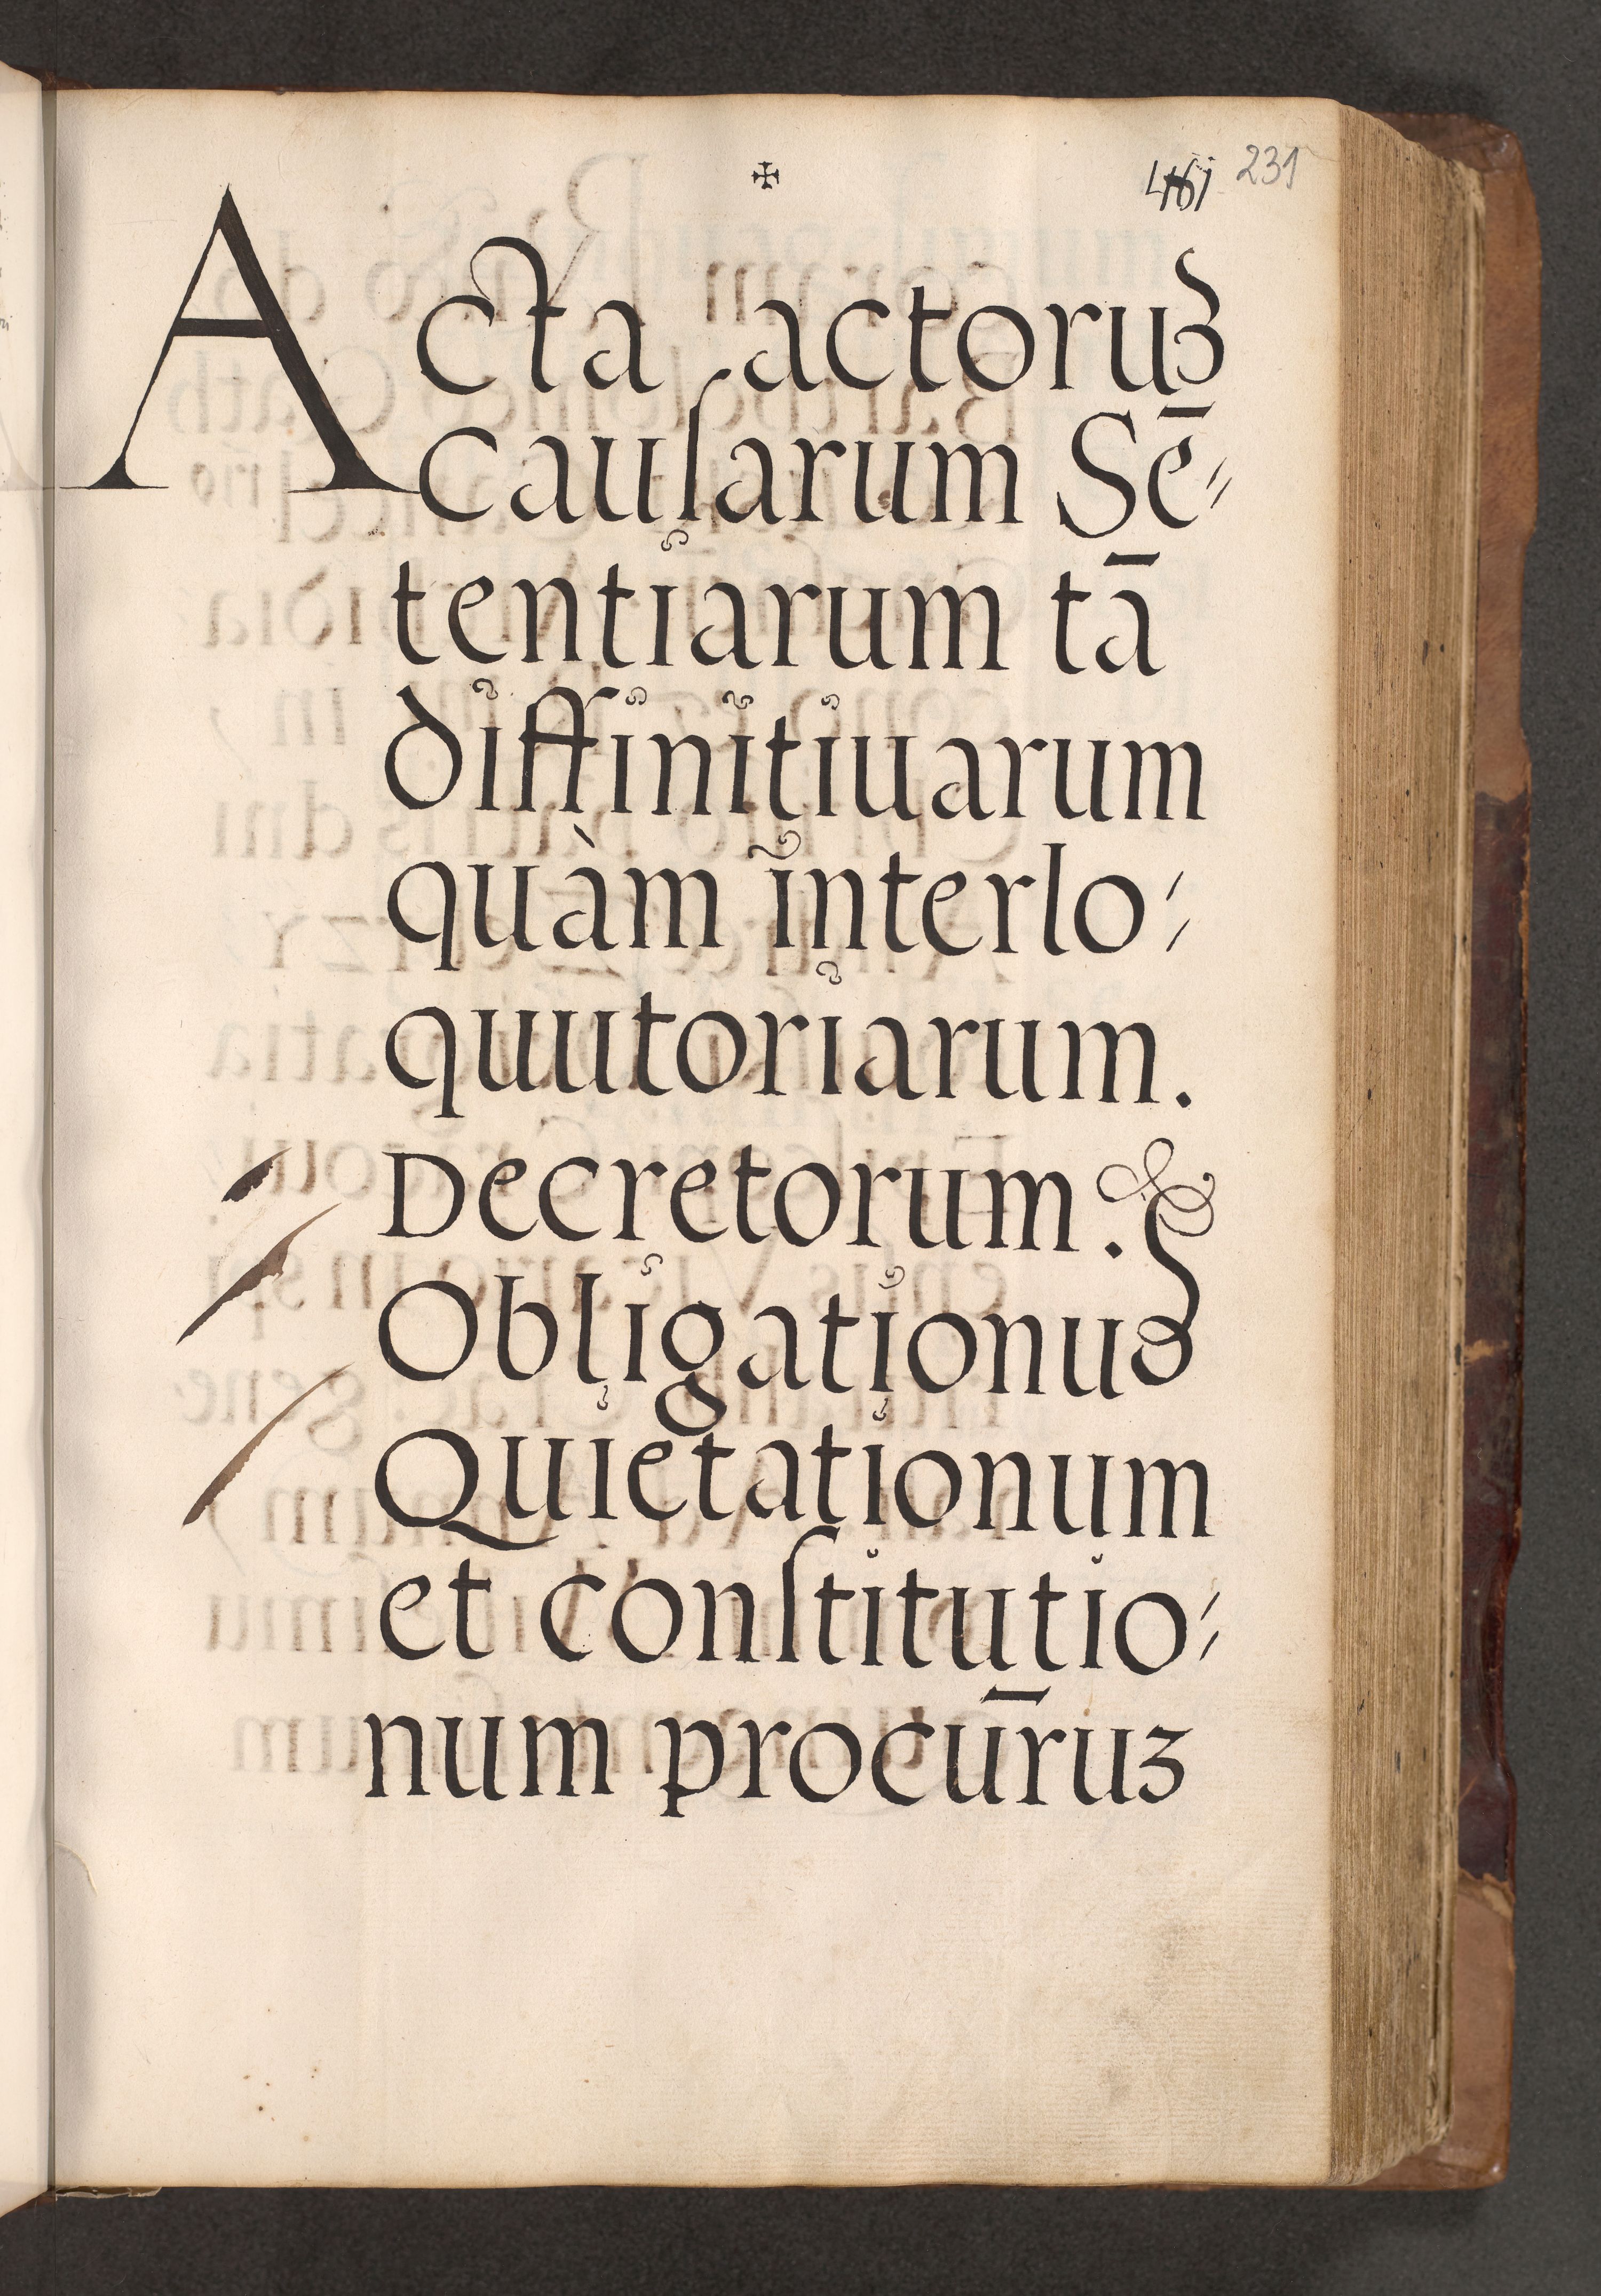 ✠
461 231
Acta actoruꝫ
cauſarum Sē⸗
tentiarum tā
diffinitiuarum
quàm interlo⸗
quutoriarum.
Decretorum.
Obligationuꝫ
Quietationum
et conſtitutio⸗
num procur̄uꝫ